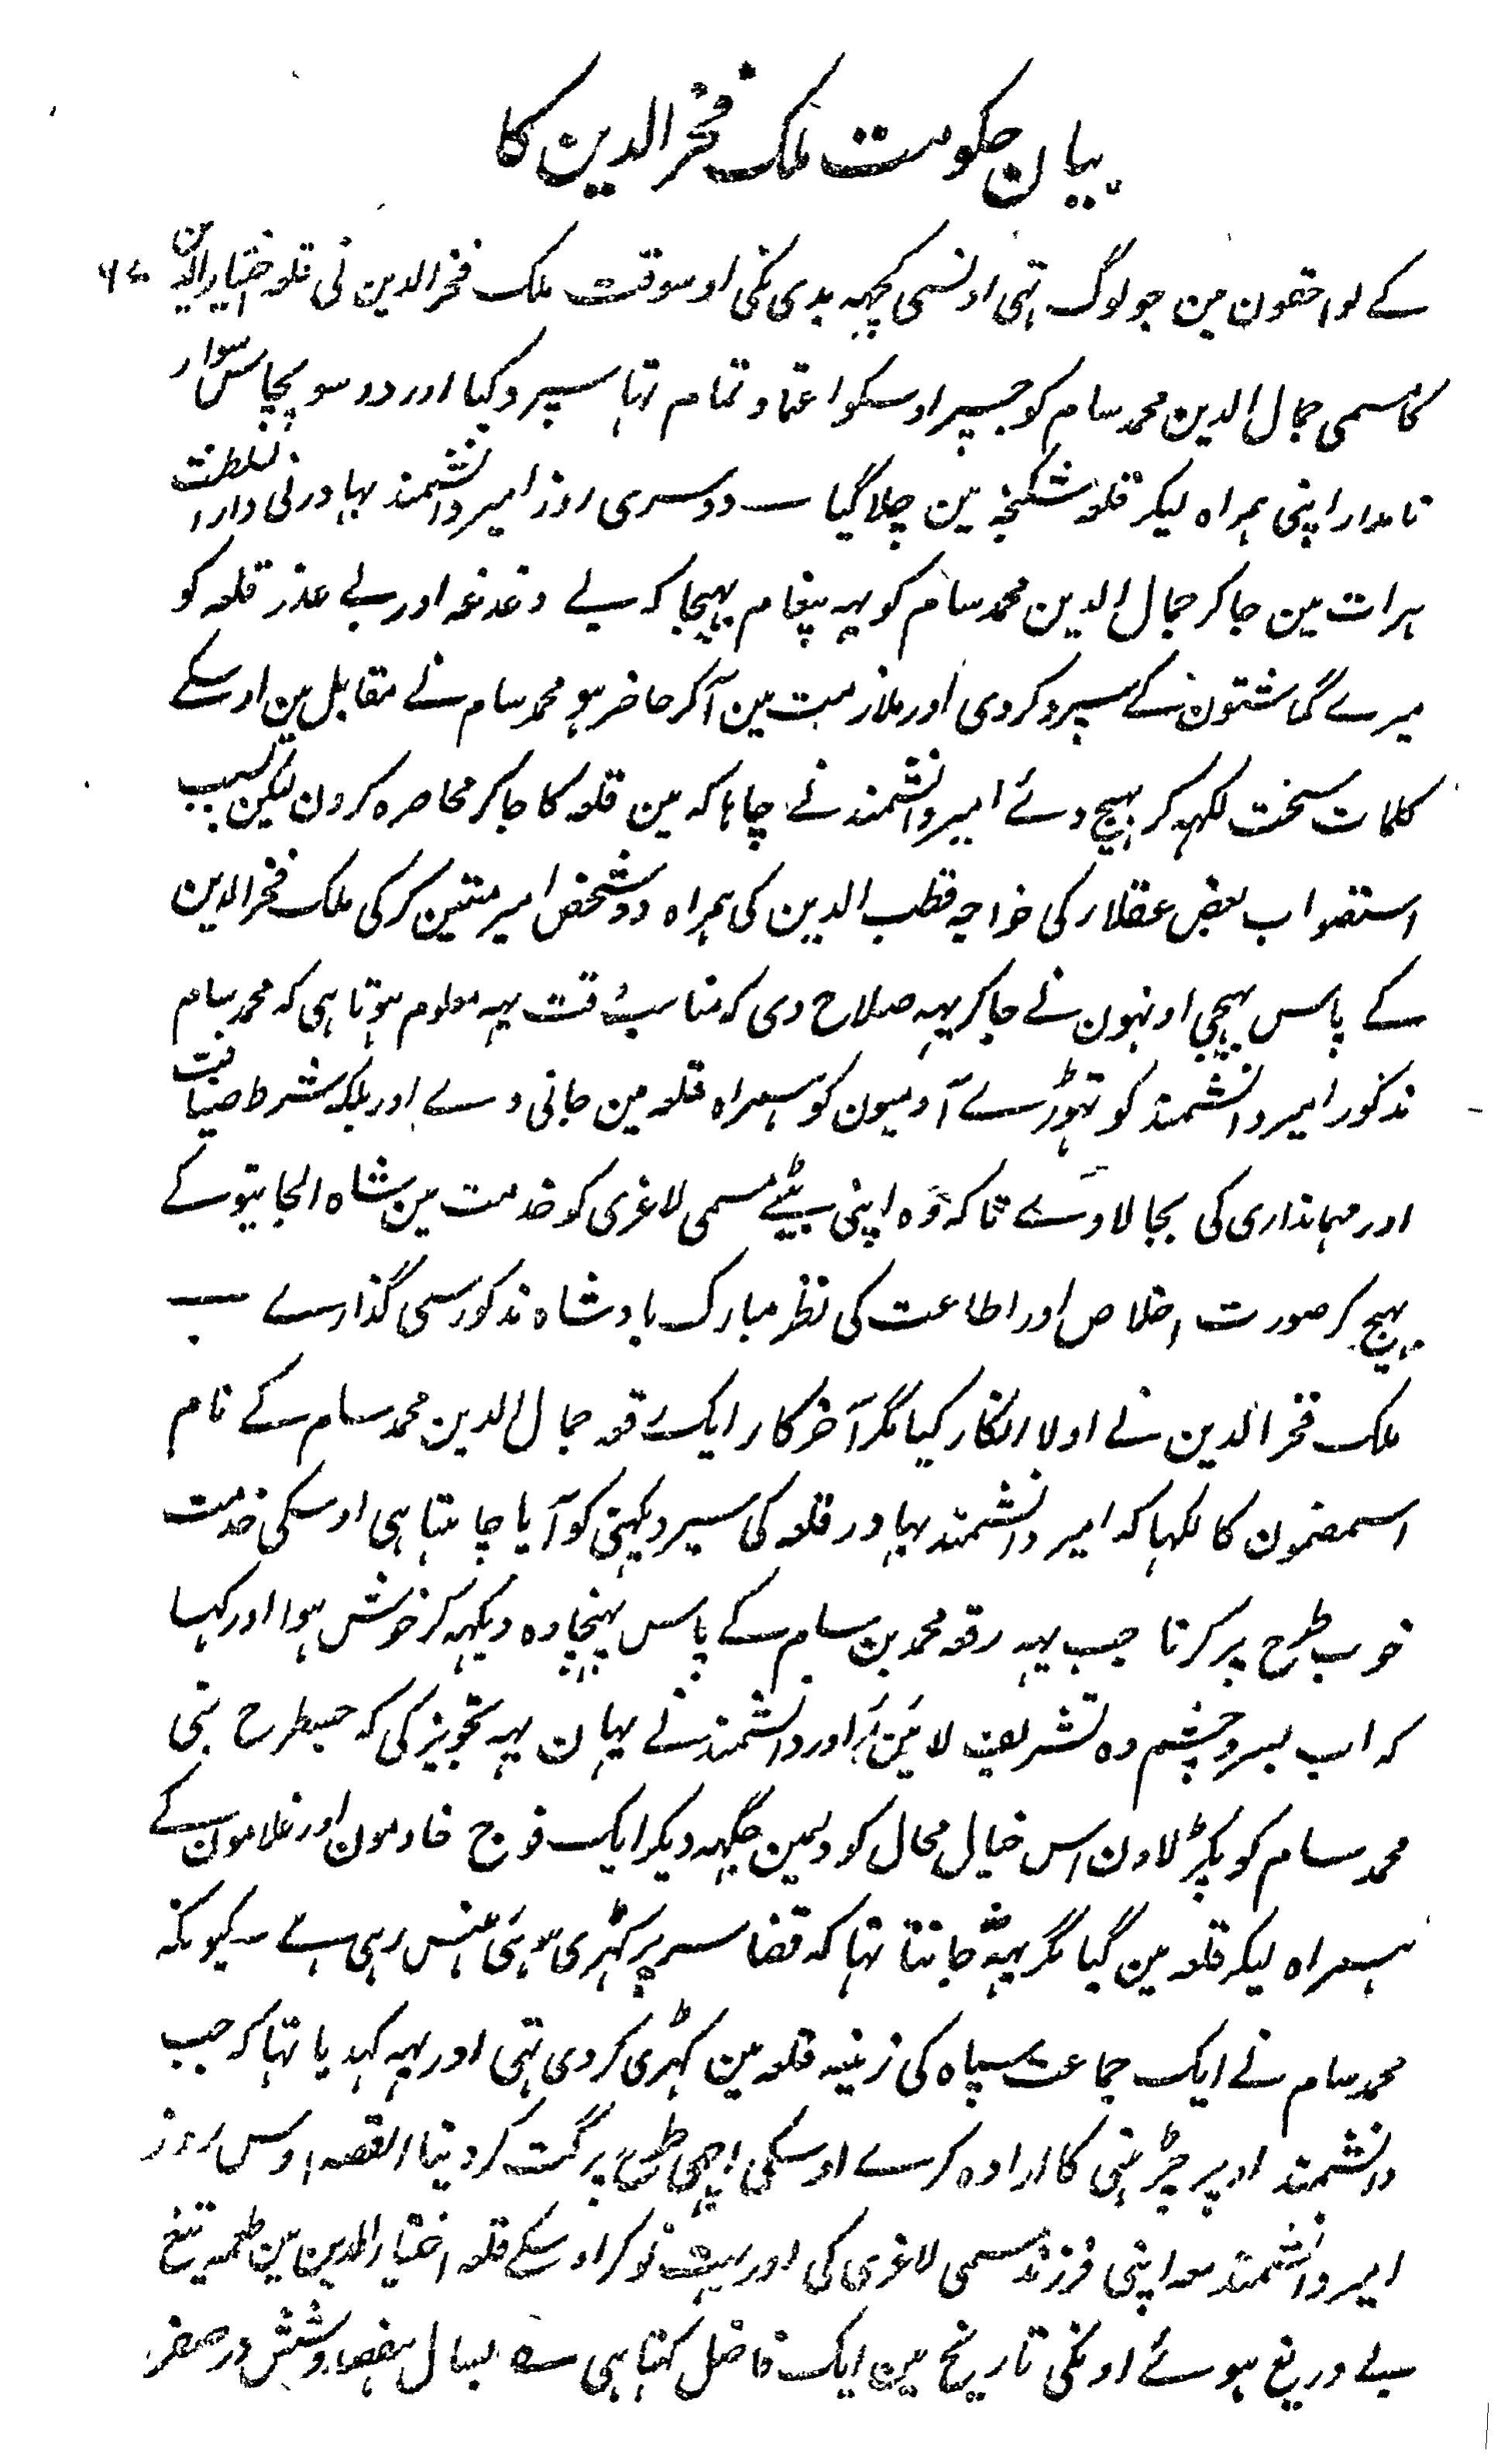 بیان حکومت ملک فخرالدین کا
کے لواحقون مین جو لوگ تہی اونسی کچہہ بدی نکی اوسوقت ملک فخرالدین نی قلعہ اختیارالدین
کا مسمی جمال الدین محمد سام کو جسپر اوسکو اعتماد تمام تہا سپرد کیا اور دو سو پچاس سوار
نامدار اپنی ہمراہ لیکر قلعہ شکنجہ مین چلا گیا ــ دوسری روز امیر دانشمند بہادر نی دارالسلطنت
ہرات مین جا کر جمال الدین محمد سام کو یہہ پیغام بہیجا کہ بے دغدغہ اور بے عذر قلعہ کو
میرے گماشتون کے سپرد کردی اور ملازمت مین آکر حاضر ہو محمد سام نے مقابل مین اوسکے
کلمات سخت لکہہ کر بہیج دئے امیر دانشمند نے چاہا کہ مین قلعہ کا جا کر محاصرہ کرون لیکن بسبب
استصواب بعض عقلاء کی خواجہ قطب الدین کی ہمراہ دو شخص امیر متعین کر کی ملک فخرالدین
کے پاس بہیجی اونہون نے جا کر یہہ صلاح دی کہ مناسب وقت یہہ معلوم ہوتا ہی کہ محمد سام
مذکور امیر دانشمند کو تہوڑے آدمیون کو ہمراہ قلعہ مین جانی دے اور بلکہ شرط ضیافت
اور مہمانداری کی بجا لاوے تاکہ وہ اپنی بیٹے مسمی لاغری کو خدمت مین شاہ الجایتو کے
بہیج کر صورت اخلاص اور اطاعت کی نظر مبارک بادشاہ مذکور سی گذارے ــ
ملک فخرالدین نے اولا انکار کیا مگر آخر کار ایک رقعہ جمال الدین محمد سام کے نام
اسمضمون کا لکہا کہ امیر دانشمند بہادر قلعہ کی سیر دیکہنی کو آیا چاہتا ہی اوسکی خدمت
خوب طرح پر کرنا جب یہہ رقعہ محمد بن سام کے پاس پہنچا وہ دیکہہ کر خوش ہوا اور کہا
کہ اب بسر و چشم وہ تشریف لائین اور دانشمند نے یہان یہہ تجویز کی کہ جسطرح بنی
محمد سام کو پکڑ لاون اس خیال محال کو دلمین جگہہ دیکر ایک فوج خادمون اور غلامون کے
ہمراہ لیکر قلعہ مین گیا مگر یہہ جانتا تہا کہ قضا سر پر کہڑی ہوئی ہنس رہی ہے ــ کیونکہ
محمد سام نے ایک جماعت سپاہ کی زینہ قلعہ مین کہڑی کردی تہی اور یہہ کہدیا تہا کہ جب
دانشمند اوپر چڑہنی کا ارادہ کرے اوسکی اچہی طرح پر گت کر دینا القصہ اوس روز
امیر دانشمند معہ اپنی فرزند مسمی لاغری کی اور بہت نوکر اوسکے قلعہ اختیارالدین مین طعمہ تیغ
بے دریغ ہوئے اونکی تاریخ مین ایک فاضل کہتا ہی بسال ہفصد و شش در صفر